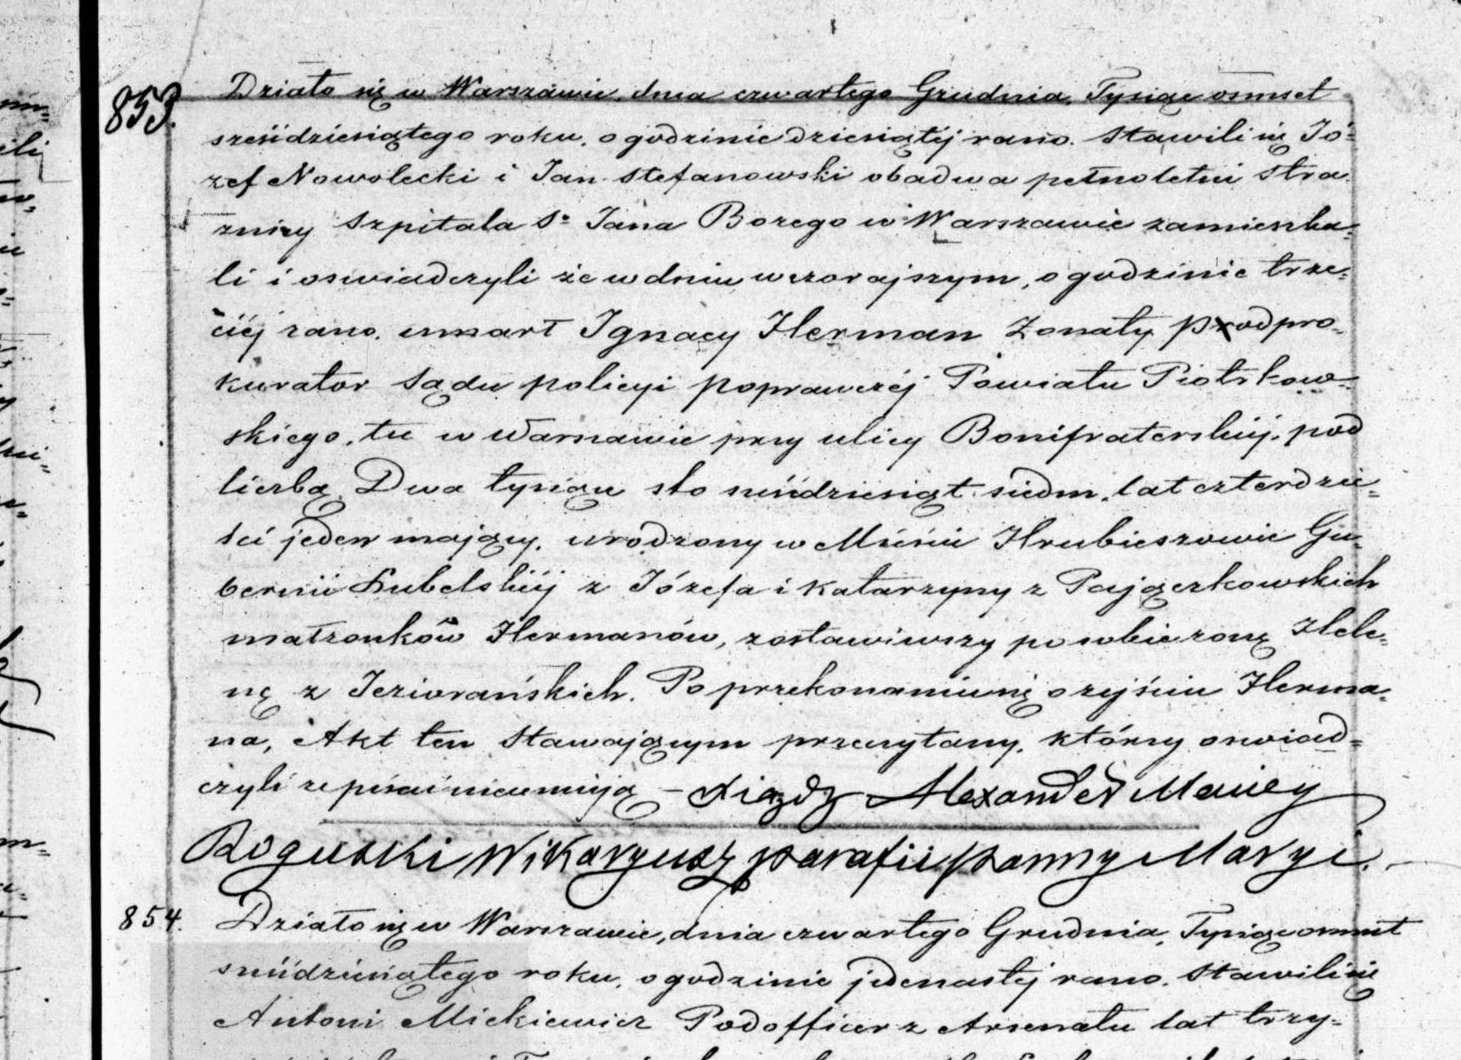 853. Działo się w Warszawie, dnia czwartego Grudnia, Tysiąc osmset
sześćdziesiątego roku, o godzinie dziesiątéj rano. Stawili się Jó=
zef Nowolecki i Jan Stefanowski obadwa pełnoletni stra
żnicy Szpitala So Jana Bożego w Warszawie zamieszka=
li i oświadczyli że w dniu wczorajszym, o godzinie trze=
ciéj rano, umarł Ignacy Herman Żonaty Podpro=
kurator Sądu policyi poprawczéj Powiatu Piotrkow=
skiego, tu w Warszawie przy ulicy Bonifraterskiéj, pod
liczbą Dwa tysiące sto sześćdziesiąt siedm, lat czterdzie=
ści jeden mający, urodzony w Mieście Hrubieszowie Gu=
bernii Lubelskiéj z Józefa i Katarzyny z Pajączkowskich
małżonków Hermanów, zostawiwszy po sobie żonę Hele=
nę z Jeziorańskich. Po przekonaniu się o zejściu Herma=
na, Akt ten Stawającym przeczytany, którzy oswiad=
czyli że pisać nieumieją – Xiądz Alexander Maciey
Rogulski Wikaryusz parafii Panny Maryi.
854. Działo się w Warszawie, dnia czwartego Grudnia, Tysiąc osmset
sześćdziesiątego roku, o godzinie jedenastej rano. Stawili się
Antoni Mickiewicz Podofficer z Arsenału lat trzy=